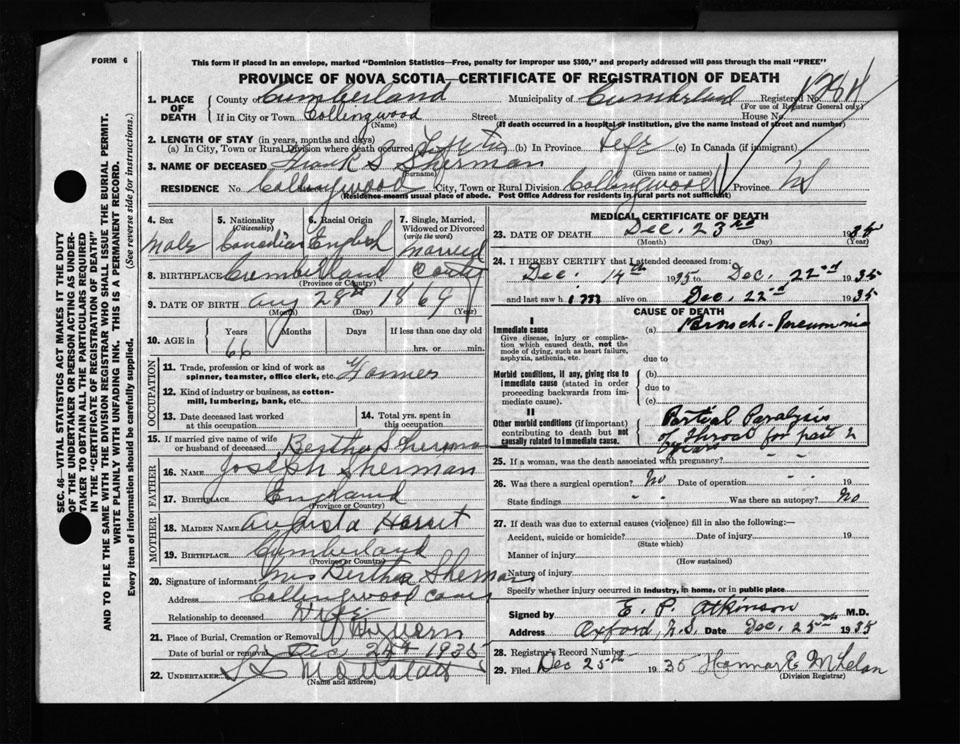 FORM 6
This form if placed in an envelope, marked "Dominion Statistics—Free, penalty for improper use $300," and properly addressed will pass through the mail "FREE"
PROVINCE OF NOVA SCOTIA—CERTIFICATE OF REGISTRATION OF DEATH
1. PLACE OF DEATH
County of Cumberland Municipality of Cumberland Registered No.
(For use of Registrar General only)
If in City or Town Collingwood Street House No.
(Name) (If death occurred in a hospital or institution, give the name instead of street and number)
2. LENGTH OF STAY (in years, months and days)
(a) In City, Town or Rural Division where death occurred (b) In Province Life (c) In Canada (if immigrant)
3. NAME OF DECEASED Frank S Sherman
(Surname) (Given name or names)
RESIDENCE No. Collingwood City, Town or Rural Division Collingwood Province NS
(Residence means usual place of abode. Post Office Address for residents in rural parts not sufficient)
4. Sex
Male
5. Nationality
(Citizenship)
Canadian
6. Racial Origin
English
7. Single, Married, Widowed or Divorced
(write the word)
Married
8. BIRTHPLACE Cumberland County
(Province or Country)
9. DATE OF BIRTH Aug 28th 1869
(Month) (Day) (Year)
10. AGE in
Years Months Days If less than one day old
66 hrs. or min.
OCCUPATION
11. Trade, profession or kind of work as spinner, teamster, office clerk, etc. Farmer
12. Kind of industry or business, as cotton-mill, lumbering, bank, etc.
13. Date deceased last worked at this occupation
14. Total yrs. spent in this occupation
15. If married give name of wife or husband of deceased Bertha Sherman
FATHER
16. NAME Joseph Sherman
17. BIRTHPLACE England
(Province or Country)
MOTHER
18. MAIDEN NAME Augusta
19. BIRTHPLACE Cumberland
(Province or Country)
20. Signature of informant Mrs Bertha Sherman
Address Collingwood
Relationship to deceased Wife
21. Place of Burial, Cremation or Removal
Date of burial or removal Dec 25th 1935
22. UNDERTAKER
(Name and address)
MEDICAL CERTIFICATE OF DEATH
23. DATE OF DEATH Dec. 23rd 1935
(Month) (Day) (Year)
24. I HEREBY CERTIFY that I attended deceased from:
Dec. 14th 1935 to Dec. 22nd 1935
and last saw him alive on Dec. 22nd 1935
CAUSE OF DEATH
I
Immediate cause
Give disease, injury or complication which caused death, not the mode of dying, such as heart failure, asphyxia, asthenia, etc.
(a) Broncho-Pneumonia
due to
Morbid conditions, if any, giving rise to immediate cause (stated in order proceeding backwards from immediate cause).
(b)
due to
(c)
II
Other morbid conditions (if important) contributing to death but not causally related to immediate cause.
Partial Paralysis
of Throat for past 2
years
25. If a woman, was the death associated with pregnancy? " "
26. Was there a surgical operation? No Date of operation " " 19
State findings " " Was there an autopsy? No
27. If death was due to external causes (violence) fill in also the following:—
Accident, suicide or homicide? Date of injury 19
(State which)
Manner of injury
(How sustained)
Nature of injury
Specify whether injury occurred in industry, in home, or in public place
Signed by E. P. Atkinson M.D.
Address Oxford, N.S. Date Dec. 25th 1935
28. Registrar's Record Number
29. Filed Dec 25th 1935
(Division Registrar)
SEC. 46—VITAL STATISTICS ACT MAKES IT THE DUTY
OF THE UNDERTAKER OR PERSON ACTING AS UNDER-
TAKER TO OBTAIN ALL THE PARTICULARS REQUIRED
IN THE "CERTIFICATE OF REGISTRATION OF DEATH"
AND TO FILE THE SAME WITH THE DIVISION REGISTRAR WHO SHALL ISSUE THE BURIAL PERMIT.
WRITE PLAINLY WITH UNFADING INK. THIS IS A PERMANENT RECORD.
Every item of information should be carefully supplied. (See reverse side for instructions.)